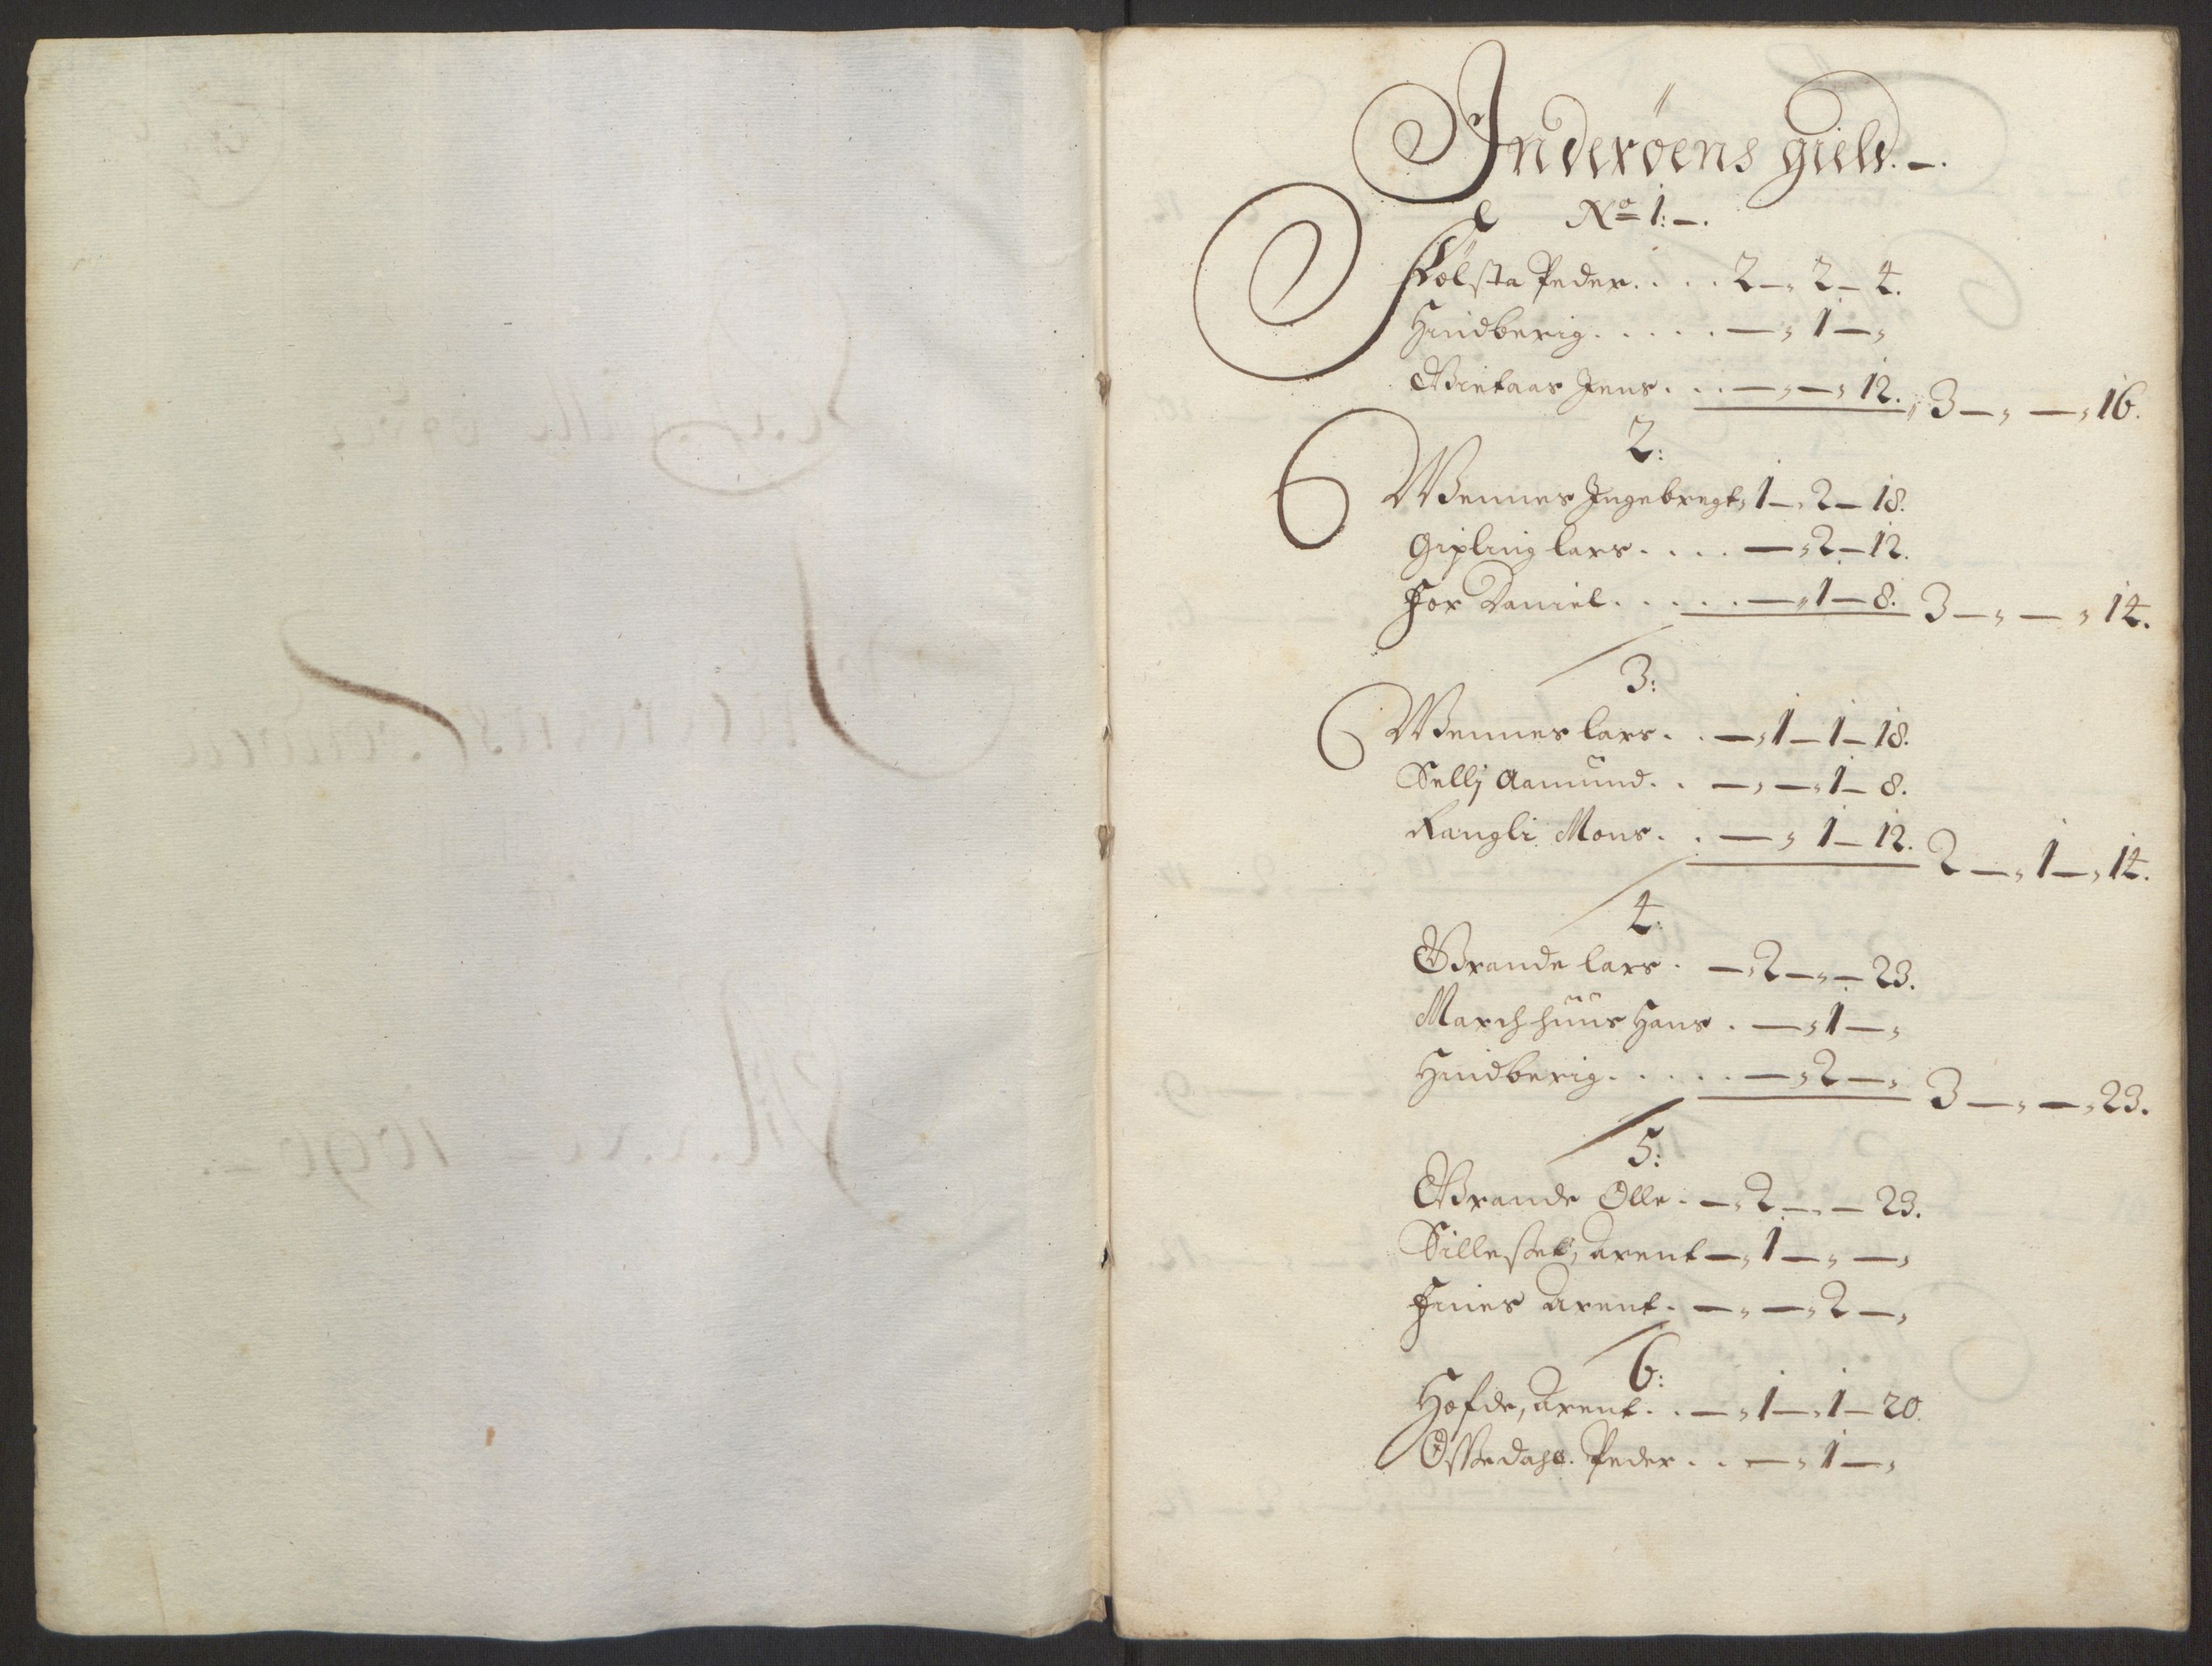 Inderøens gield.-.
No 1:-.
Følsta Peder. . . . 2 - 2 - 4.
Hindberig. . . . . - 1 -
Bietaas Jens. . . - - 12. 3 - - 16.
2:
Wennes Ingebregt 1 - 2 - 18.
Gipling lars. . . . - 2 - 12.
For Daniel. . . . . - 1 - 8. 3 - - 14.
3:
Wennes lars. . - 1 - 1 - 18.
Sellj Aamund. . - - 1 - 8.
Rangli Mons. . - 1 - 12. 2 - 1 - 14.
4.
Brande lars. - 2 - - 23.
Marchhuus Hans. - 1 -
Hindberig. . . . . - 2 - 3 - - 23.
5:
Brande Olle. - 2 - - 23.
Silleset, arent - 1 - -
Finis arent. - - 2 -
6:
Hofde, arent. . - 1 - 1 - 20.
Peder. . - 1 -